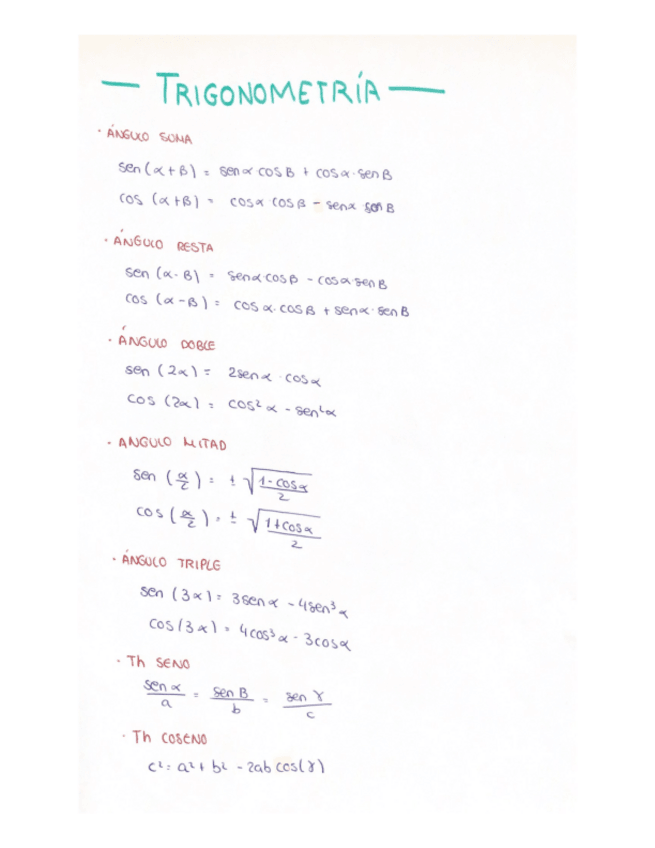 — TRIGONOMETRÍA —
· ÁNGULO SUMA
sen (α+β) = sen α cos β + cos α · sen β
cos (α+β) = cos α · cos β - sen α · sen β
· ÁNGULO RESTA
sen (α-β) = sen α · cos β - cos α · sen β
cos (α-β) = cos α · cos β + sen α · sen β
· ÁNGULO DOBLE
sen (2α) = 2sen α · cos α
cos (2α) = cos² α - sen² α
· ANGULO MITAD
sen (α/2) = ± √(1-cos α / 2)
cos (α/2) = ± √(1+cos α / 2)
· ÁNGULO TRIPLE
sen (3α) = 3sen α - 4sen³ α
cos (3α) = 4cos³ α - 3cos α
· Th SENO
sen α / a = sen β / b = sen γ / c
· Th COSENO
c² = a² + b² - 2ab cos(γ)